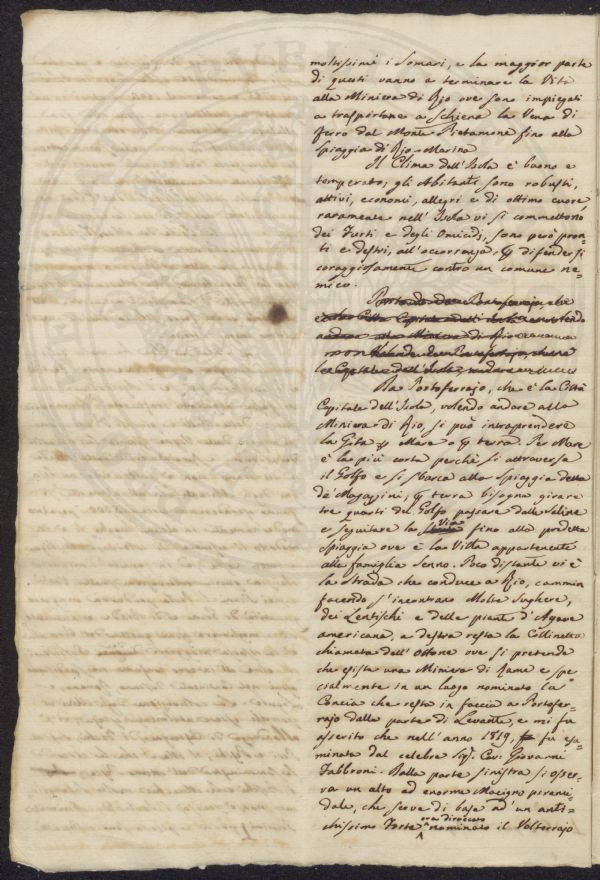 moltissimi i Somari, e la maggior parte
di questi vanno a terminare la Vita
alla Miniera di Rio ove sono impiegati
a trasportare a Schiena la Vena di
ferro dal Monte Pietamone fino alla
Spiaggia di Rio-Marina
Il Clima dell'Isola è buono e
temperato; gli Abitanti sono robusti,
attivi, economi, allegri e di ottimo cuore,
raramente nell'Isola vi si commettono
dei Furti e degli Omicidj, sono però pron-
ti e destri, all'occorrenza, p difendersi
coraggiosamente contro un comune ne-
mico.
Portoferrajo, che
Capitale dell'Isola volendo
andare alla Miniera di Rio
volendo da Portoferrajo, che è la
Capitale dell'Isola, andare
Da Portoferrajo, che è la Città
Capitale dell'Isola, volendo andare alla
Miniera di Rio, si può intraprendere
la Gita p Mare o p terra. Per Mare
è la più corta perchè si attraversa
il Golfo e si sbarca alla Spiaggia detta
de' Magazzini, p terra bisogna girare
tre quarti del Golfo passare dalle Saline
e seguitare la Via fino alla predetta
Spiaggia ove è la Villa appartenente
alla famiglia Senno. Poco distante vi è
la strada che conduce a Rio, cammin
facendo s'incontrano Molte Sughere,
dei Lentischi e delle piante d'Agave
americana, a destra resta la Collinetta
chiamata dell'Ottone ove si pretende
che esista una Miniera di Rame e spe-
cialmente in un luogo nominato la
Concia che resta in faccia a Portofer-
rajo dalla parte di Levante, e mi fu
asserito che nell'anno 1819, fu esa-
minata dal celebre Sig. Cav. Giovanni
Fabbroni. Dalla parte sinistra si osser-
va un alto ed enorme Macigno pirami-
dale, che serve di base ad un anti-
chissimo Forte ora diroccato nominato il Volterrajo